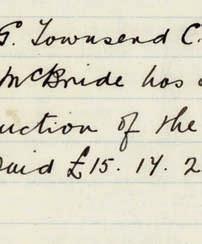 G. Townsend C.
McBride has
uction of the
Paid £15. 14. 2